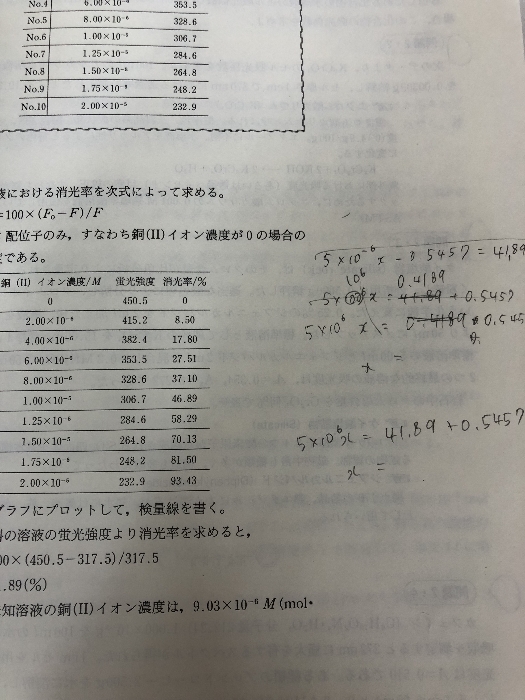 No.4 6.00×10⁻⁶ 353.5
No.5 8.00×10⁻⁶ 328.6
No.6 1.00×10⁻⁵ 306.7
No.7 1.25×10⁻⁵ 284.6
No.8 1.50×10⁻⁵ 264.8
No.9 1.75×10⁻⁵ 248.2
No.10 2.00×10⁻⁵ 232.9
液における消光率を次式によって求める。
=100×(F₀−F)/F
配位子のみ，すなわち銅(II)イオン濃度が0の場合の
である。
銅 (II) イオン濃度/M 蛍光強度 消光率/%
0 450.5 0
2.00×10⁻⁶ 415.2 8.50
4.00×10⁻⁶ 382.4 17.80
6.00×10⁻⁶ 353.5 27.51
8.00×10⁻⁶ 328.6 37.10
1.00×10⁻⁵ 306.7 46.89
1.25×10⁻⁵ 284.6 58.29
1.50×10⁻⁵ 264.8 70.13
1.75×10⁻⁵ 248.2 81.50
2.00×10⁻⁵ 232.9 93.43
グラフにプロットして，検量線を書く。
の溶液の蛍光強度より消光率を求めると，
00×(450.5−317.5)/317.5
.89(%)
知溶液の銅(II)イオン濃度は，9.03×10⁻⁶ M(mol・
5×10⁻⁶ x − 0.5457 = 41.89
10⁶ 0.4189
x = 41.89 + 0.5457
5×10⁶ x = 0.4189 + 0.545
x =
5×10⁶x = 41.89 + 0.5457
x =